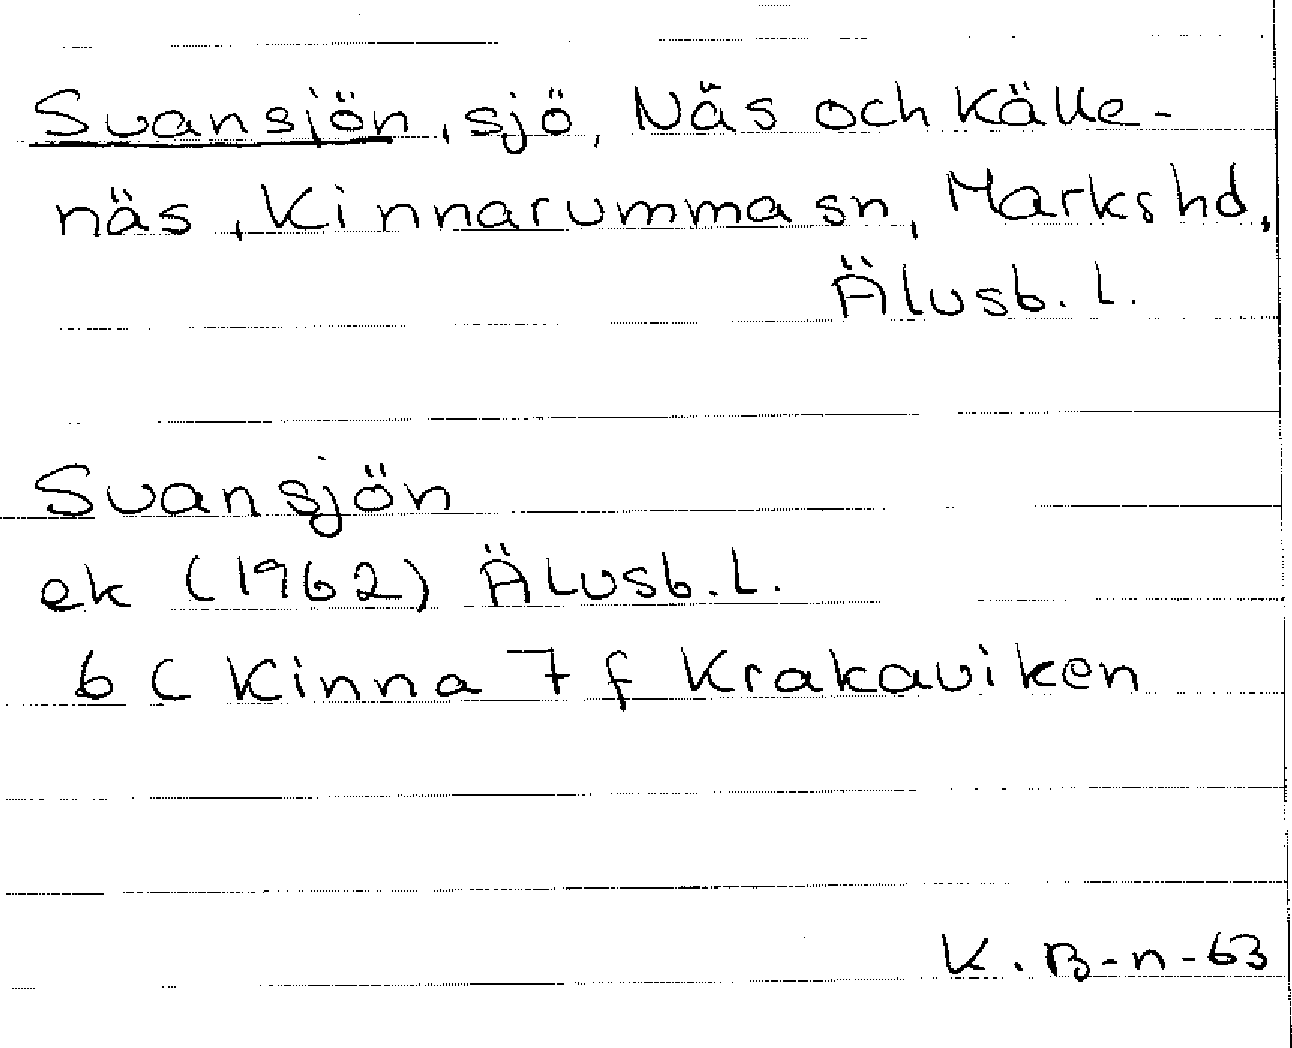 Svansjön, sjö, Näs och Källe-
näs, Kinnarumma sn, Marks hd,
Älvsb. l.
Svansjön
ek (1962) Älvsb. L.
6 C Kinna 7 f Krakaviken
K. B-n-63